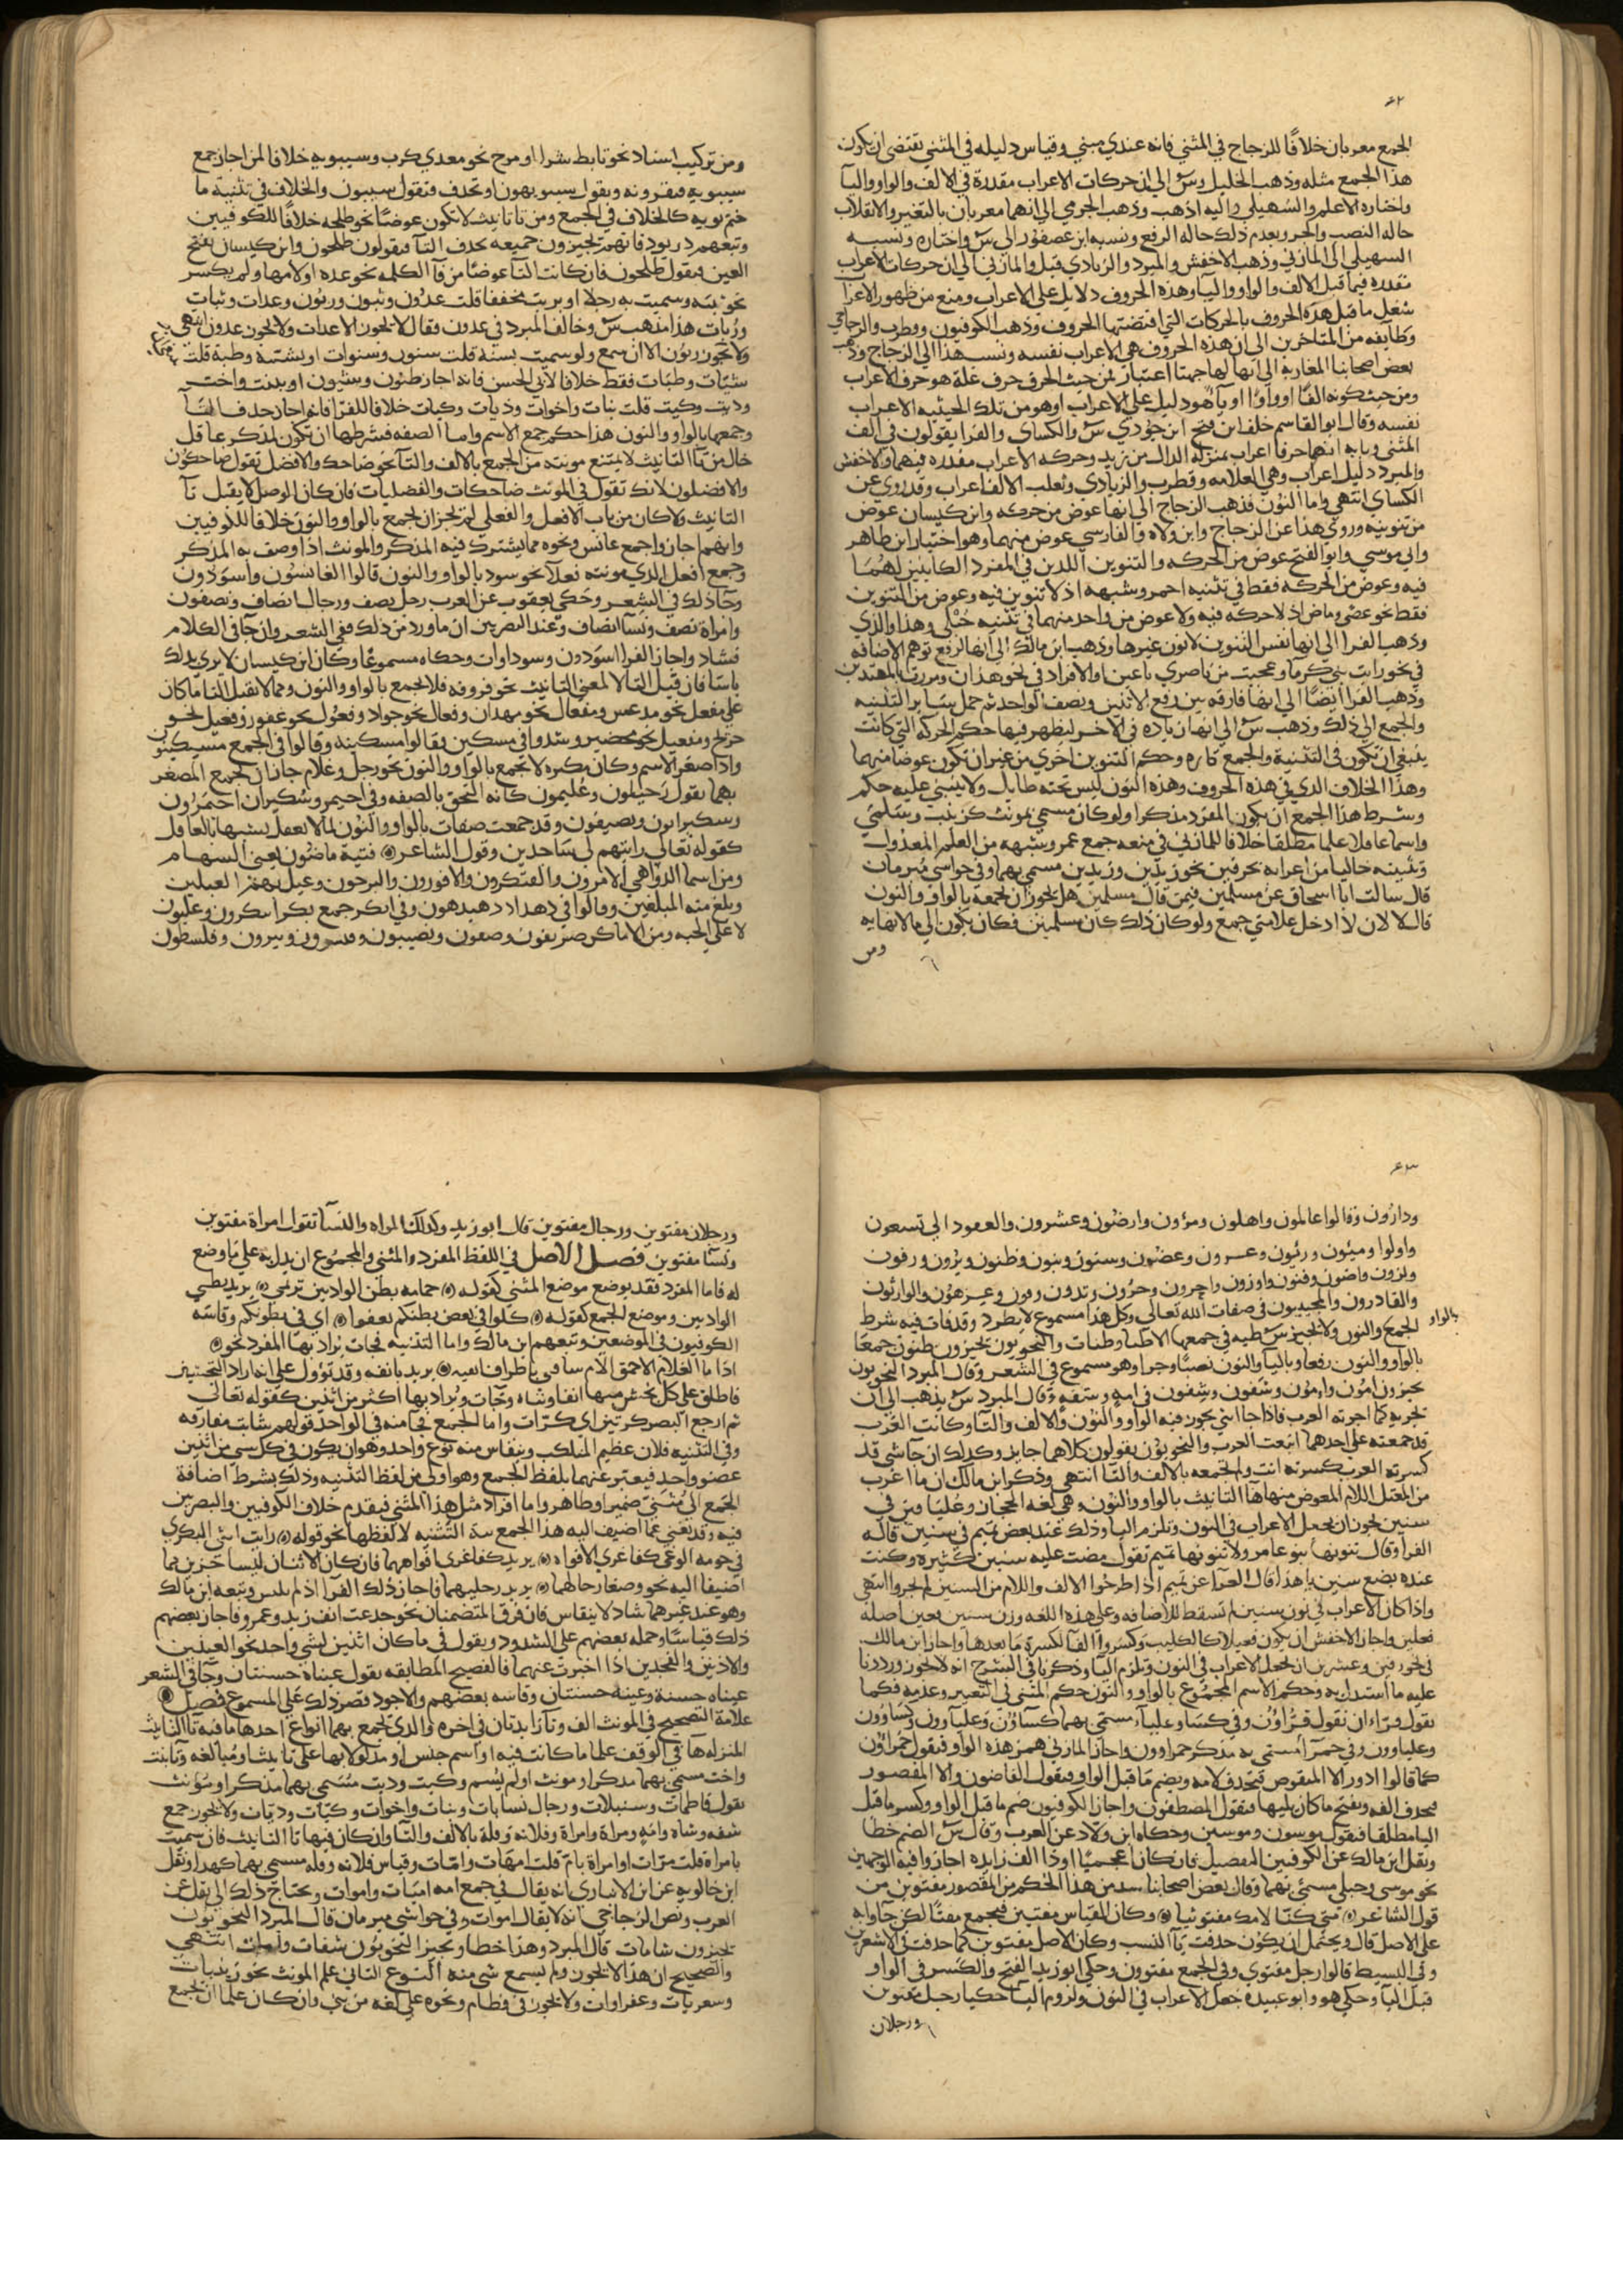 ٤٢
الجمع معربان خلافا للزجاج في المثني فانه عندي مبني وقياس دليله في المثني يقتضي ان يكون
هذا الجمع مثله وذهب الخليل وس الي ان حركات الاعراب مقدرة في الالف والواو واليا
واختاره الاعلم والسهيلي واليه اذهب وذهب الجرمي الي انهما معربان بالتغير والانقلاب
حالة النصب والجر وبعدم ذلك حاله الرفع ونسبه ابن عصفور الي س واختاره ونسبه
السهيلي الي المازني وذهب الاخفش والمبرد والزيادي قبل والمازني الي ان حركات الاعراب
مقدره فيما قبل الالف والواو واليا وهذه الحروف دلايل علي الاعراب ومنع من ظهور الاعراب
شغل ما قبل هذه الحروف بالحركات التي اقتضتها الحروف وذهب الكوفيون وقطرب والزجاجي
وطايفه من المتاخرين الي ان هذه الحروف هي الاعراب نفسه ونسب هذا الي الزجاج وذهب
بعض اصحابنا المغاربة الي انها لها جهتا اعتبار فمن حيث الحرف حرف علة هو حرف الاعراب
ومن حيث كونه الفا او واوا او يآ هو دليل علي الاعراب او هو من تلك الحيثيه الاعراب
نفسه وقال ابو القاسم خلف ابن فتح ابن جودي س والكساي والفرا يقولون في الف
المثني وبابه انهما حرفا اعراب بمنزلة الدال من زيد وحركه الاعراب مقدره فيهما والاخفش
والمبرد دليل اعراب وهي العلامه وقطرب والزيادي وثعلب الالف اعراب وقد روي عن
الكساي انتهي واما النون فذهب الزجاج الي انها عوض من حركه وابن كيسان عوض
من تنوينه وروي هذا عن الزجاج وابن ولاد والفارسي عوض منهما وهو اختيار ابن طاهر
وابي موسي وابو الفتح عوض من الحركه والتنوين اللذين في المفرد الكاينين لهما
فيه وعوض من الحركه فقط في تثنيه احمر وشبهه اذ لا تنوين فيه وعوض من التنوين
فقط نحو عصي وماض اذ لا حركه فيه ولا عوض من واحد منهما في تثنيه حبلي وهذا والذي
وذهب الفرا الي انها نفس التنوين لا نون غيرها وذهب ابن مالك الي انها لرفع توهم الاضافه
في نحو رايت بني كرما وعجبت من ناصري باغين او الافراد في نحو هذان ومررت بالمهتدين
وذهب الفرا ايضا الي انها فارقه بين رفع الاثنين ونصف الواحد ثم حمل سايرالتثنيه
والجمع الي ذلك وذهب س الي انها زيادة في الاخر ليظهر فيها حكم الحركه التي كانت
ينبغي ان تكون في التثنية والجمع تاره وحكم التنوين اخري من غير ان تكون عوضا منهما
وهذا الخلاف الذي في هذه الحروف وهذه النون ليس تحته طايل ولا ينبني عليه حكم
وشرط هذا الجمع ان يكون المفرد مذكرا ولو كان مسمي مونث كزينب وسلمي
واسما عاقلا علما مطلقا خلافا للمازني في منعه جمع عمر وشبهه من العلم المعدول
وتثنيته خاليا من اعرابه بحرفين نحو زيدين وزيدين مسمي بهما وفي حواشي مبرمان
قال سالت ابا اسحاق عن مسلمين فيمن قال مسلمين هل يجوز ان تجمعه بالواو والنون
قال لا لان لا ادخل علامتي جمع ولو كان ذلك كان مسلمينن فكان يكون الي ما لا نهايه
ومن
ومن تركيب اسناد نحو تابط شرا او مزج نحو معدي كرب وسيبويه خلافا لمن اجاز جمع
سيبويه فيقرونه ويقول سيبويهون او يحذف فتقول سيبون والخلاف في تثنية ما
ختم بويه كالخلاف في الجمع ومن تا تانيث لا تكون عوضا نحو طلحه خلافا للكوفيين
وتبعهم دريود فانهم يجيزون جميعه بحذف التا فيقولون طلحون وابن كيسان يفتح
العين فيقول طلحون فان كانت التا عوضا من فآ الكلمه نحو عده او لامها ولم يكسر
نحو ثبه وسميت به رجلا او بربت مخففا قلت عدون وثبون وربون وعدات وثبات
وربات هذا مذهب س وخالف المبرد في عدون فقال لا يجوز الا عدات ولا يجوز عدون انتهي
ولا يجوز ربون الا ان سمع ولو سميت بسنة قلت سنون وسنوات او بشية وظبة قلت
شيات وظبات فقط خلافا لابي الحسن فانه اجاز ظبون وشيون او ببنت واخت
وذيت وكيت قلت بنات واخوات وذيات وكيات خلافا للفرا فانه اجاز حذف التآ
وجمعها بالواو والنون هذا حكم جمع الاسم واما الصفه فشرطها ان تكون لمذكر عاقل
خال من تآ التانيث لا يمتنع مونثه من الجمع بالالف والتآ نحو ضاحك والافضل تقول ضاحكون
والافضلون لانك تقول في المونث ضاحكات والفضليات فان كان الوصل لا يقبل تآ
التانيث ولا كان من باب الافعل والفعلي لم يجز ان تجمع بالواو والنون خلافا للكوفيين
وانهم اجازوا جمع عانس ونحوه مما يشترك فيه المذكر والمونث اذا وصف به المذكر
وجمع افعل الذي مونثه فعلآ نحو سود بالواو والنون قالوا العانسون واسودون
وجا ذلك في الشعر وحكي يعقوب عن العرب رجل نصف ورجال انصاف ونصفون
وامراة نصف ونسآ انصاف وعند البصريين ان ما ورد من ذلك ففي الشعر وان جا في الكلام
فشاذ واجاز الفرا اسودون وسوداوات وحكاه مسموعا وكان ابن كيسان لا يري بذلك
باسا فان قبل التا لا لمعني التانيث نحو فروقه فلا يجمع بالواو والنون ومما لا يقبل التا ما كان
علي مفعل نحو مدعس ومفعال نحو مهذار وفعال نحو جواد وفعول نحو غفور وفعيل نحو
جريح ومفعيل نحو محضير وشذوا في مسكين فقالوا مسكينه وقالوا في الجمع مسكينون
واذا صغر الاسم وكان مكبره لا يجمع بالواو والنون نحو رجل وغلام جاز ان يجمع المصغر
بهما تقول رجيلون وغليمون كانه التحق بالصفه وفي احيمر وسكيران احيمرون
وسكيرانون ونصيفون وقد جمعت صفات بالواو والنون لما لا يعقل تشبيها بالعاقل
كقوله تعالي رايتهم لي ساجدين وقول الشاعر فتية ماضون يعني السهام
ومن اسما الدواهي الامرون والفتكرون والاقورون والبرحون
وبلغ منه المبلغين وقالوا في دهداه دهيدهون وفي ابكر جمع بكر ابيكرون وعليون
لاعلي الجنه ومن الاماكن صريفون وصفون ونصيبون وقنسرون ويبرون وفلسطون
٤٣
ودارون وقالوا عالمون واهلون ومرؤون وارضون وعشرون والعقود الي تسعون
واولوا وميئون ورئيون وعضون وسنون وبنون وظنون وبرون ورقون
والقادرون والمجيبون في صفات الله تعالي وكل هذا مسموع لا يطرد وقد فات فيه شرط
الجمع والنون ولا يجيز س ظبه في جمعها الا ظبا وظبات والنحويون يجيزون ظبون جمعا
بالواو
بالواو والنون رفعا وباليا والنون نصبا وجرا وهو مسموع في الشعر وقال المبرد النحويون
يجيزون امون وامون وشفون وشفون في امه وشفه وقال المبرد س يذهب الي ان
يجريه كما اجرته العرب فاذا جا شي يجوز فيه الواو والنون والالف والتآ وكانت العرب
قد جمعته علي احدهما اتبعت العرب والنحويون يقولون كلاهما جايز وكذلك ان جا شي قد
كسرته العرب كسرته انت والا جمعه بالالف والتآ انتهي وذكر ابن مالك ان ما اعرب
من المعتل اللام المعوض منها هآ التانيث بالواو والنون وهي لغه الحجاز وعليا قيس في
سنين يجوز ان يجعل الاعراب في النون وتلزم اليا وذلك عند بعض تميم في سنين قاله
الفرا وقال تنونها بنو عامر ولا تنونها تميم تقول مضت عليه سنين كثيره وكنت
عنده بضع سنين يا هذا قال الفرا عن تميم اذا طرحوا الالف واللام من السنين لم يجروا انتهي
واذا كان الاعراب في نون سنين لم تسقط للاضافه وعلي هذه اللغه وزن سنين فعين اصله
فعلين واجاز الاخفش ان يكون فعيلا كالكليب وكسروا الفآ لكسرة ما بعدها واجاز ابن مالك
في نحو رقين وعشرين ان يجعل الاعراب في النون وتلزم اليا وذكرنا في الشرح انه لا يجوز ورددنا
عليه ما استدل به وحكم الاسم المجموع بالواو والنون حكم المثني في التغيير وعدمه فكما
تقول قرآان تقول قراؤن وفي كسآ وعليآ مسمي بهما كساؤن وعلياوون وكساوون
وعلياوون وفي حمرآ مسمي به مذكر حمراوون واجاز المازني همز هذه الواو فيقول حمراؤن
كما قالوا ادور الا المنقوص فتحذف لامه ويضم ما قبل الواو فيقول القاضون والا المقصور
فيحذف الفه ويفتح ما كان يليها فيقول المصطفون واجاز الكوفيون ضم ما قبل الواو وكسر ما قبل
اليا مطلقا فيقول موسون وموسين وحكاه ابن ولاد عن العرب وقال س الضم خطا
ونقل ابن مالك عن الكوفيين التفصيل فان كان اعجميا او ذا الف زايده اجازوا فيه الوجهين
نحو موسي وحبلي مسمي بهما وقال بعض اصحابنا شذ من هذا الحكم من المقصور مقتوين من
قول الشاعر متي كنا لامك مقتوينا وكان القياس مقتين فيجمع مقتا لكن جآوا به
علي الاصل قال ويحتمل ان يكون حذفت يآ النسب وكان الاصل مقتويين كما حذفت في الاشعرين
وفي البسيط قالوا رجل مقتوي وفي الجمع مقتوون وحكي ابو زيد الفتح والكسر في الواو
قبل اليا وحكي هو وابو عبيده جعل الاعراب في النون ولزوم اليا حكيا رجل مقتوين
ورجلان
ورجلان مقتوين ورجال مقتوين قال ابو زيد وكذلك المراه والنسآ تقول امراة مقتوين
ونسآ مقتوين فصل الاصل في اللفظ المفرد والمثني والمجموع ان يدل به علي ما وضع
له فاما المفرد فقد يوضع موضع المثني كقوله حمامه بطن الواديين ترنمي يريد بطني
الواديين وموضع الجمع كقوله كلوا في بعض بطنكم تعفوا اي في بطونكم وقاسه
الكوفيون في الموضعين وتبعهم ابن مالك واما التثنيه فجات يراد بها المفرد نحو
اذا ما الغلام الاحمق الام سافني باطراف انفيه يريد بانفه وقد تؤول علي انه اراد المنخرين
فاطلق علي كل منخر منها انفا وشاه وجآت ويراد بها اكثر من اثنين كقوله تعالي
ثم ارجع البصر كرتين اي كرات واما الجمع فجا منه في الواحد قولهم شابت مفارقه
وفي التثنيه فلان عظيم المناكب وينقاس منه نوع واحد وهو ان يكون في كل شي من اثنين
عضو واحد فيعبر عنهما بلفظ الجمع وهو اولي من لفظ التثنيه وذلك بشرط اضافة
الجمع الي مثني ضمير او ظاهر واما افراد مثل هذا المثني فيقدم خلاف الكوفيين والبصريين
فيه وقد يغني عما اضيف اليه هذا الجمع نية التثنيه لا لفظها نحو قوله رايت ابني البكري
في حومه الوغي كفاغري الافواه يريد كفاغري افواههما فان كان الاثنان ليسا جزين مما
اضيفا اليه نحو وضعا رحالهما يريد رحليهما فاجاز ذلك الفرآ اذ لم يلبس وتبعه ابن مالك
وهو عند غيرهما شاذ لا ينقاس فان فرق المتضمنان نحو جدعت انف زيد وعمرو فاجاز بعضهم
ذلك قياسا وحمله بعضهم علي الشذوذ ويقول في ما كان اثنين لشي واحد نحو العينين
والاذنين والفخذين اذا اخبرت عنهما فالفصيح المطابقه تقول عيناه حسنتان وجآ في الشعر
عيناه حسنة وعينه حسنتان وقاسه بعضهم والاجود قصر ذلك علي المسموع فصل
علامة التصحيح في المونث الف وتآ زايدتان في اخره والذي يجمع بهما انواع احدها ما فيه تآ التانيث
المنزله هآ في الوقف علما ما كانت فيه او اسم جنس او مدلولا بها علي تانيث او مبالغه وتا بنت
واخت مسمي بهما مذكر او مونث او لم يسم وكيت وذيت مسمي بهما مذكر او مؤنث
تقول فاطمات وسنبلات ورجال نسابات وبنات واخوات وكيات وذيات ولا يجوز جمع
شفه وشاه وامه ومراة وامراة وفلانه وفلة بالالف والتآ وان كان فيها تا التانيث فان سميت
بامراة قلت مرات او امراة بام قلت امهات وامات وقياس فلانه وفله مسمي بهما كهذا ونقل
ابن خالويه عن ابن الانباري انه يقال في جمع امه اميات واموات ويحتاج ذلك الي نقل عن
العرب ونص الزجاجي انه لا يقال اموات وفي حواشي مبرمان قال المبرد النحويون
يجيزون شاهات قال المبرد وهذا خطا ويجيز النحويون شفات وامات انتهي
والصحيح ان هذا لا يجوز ولم يسمع شي منه النوع الثاني علم المونث نحو زينبات
وسعديات وعفراوات ولا يجوز في قطام ونحوه علي لغه من بني وان كان علما ان يجمع